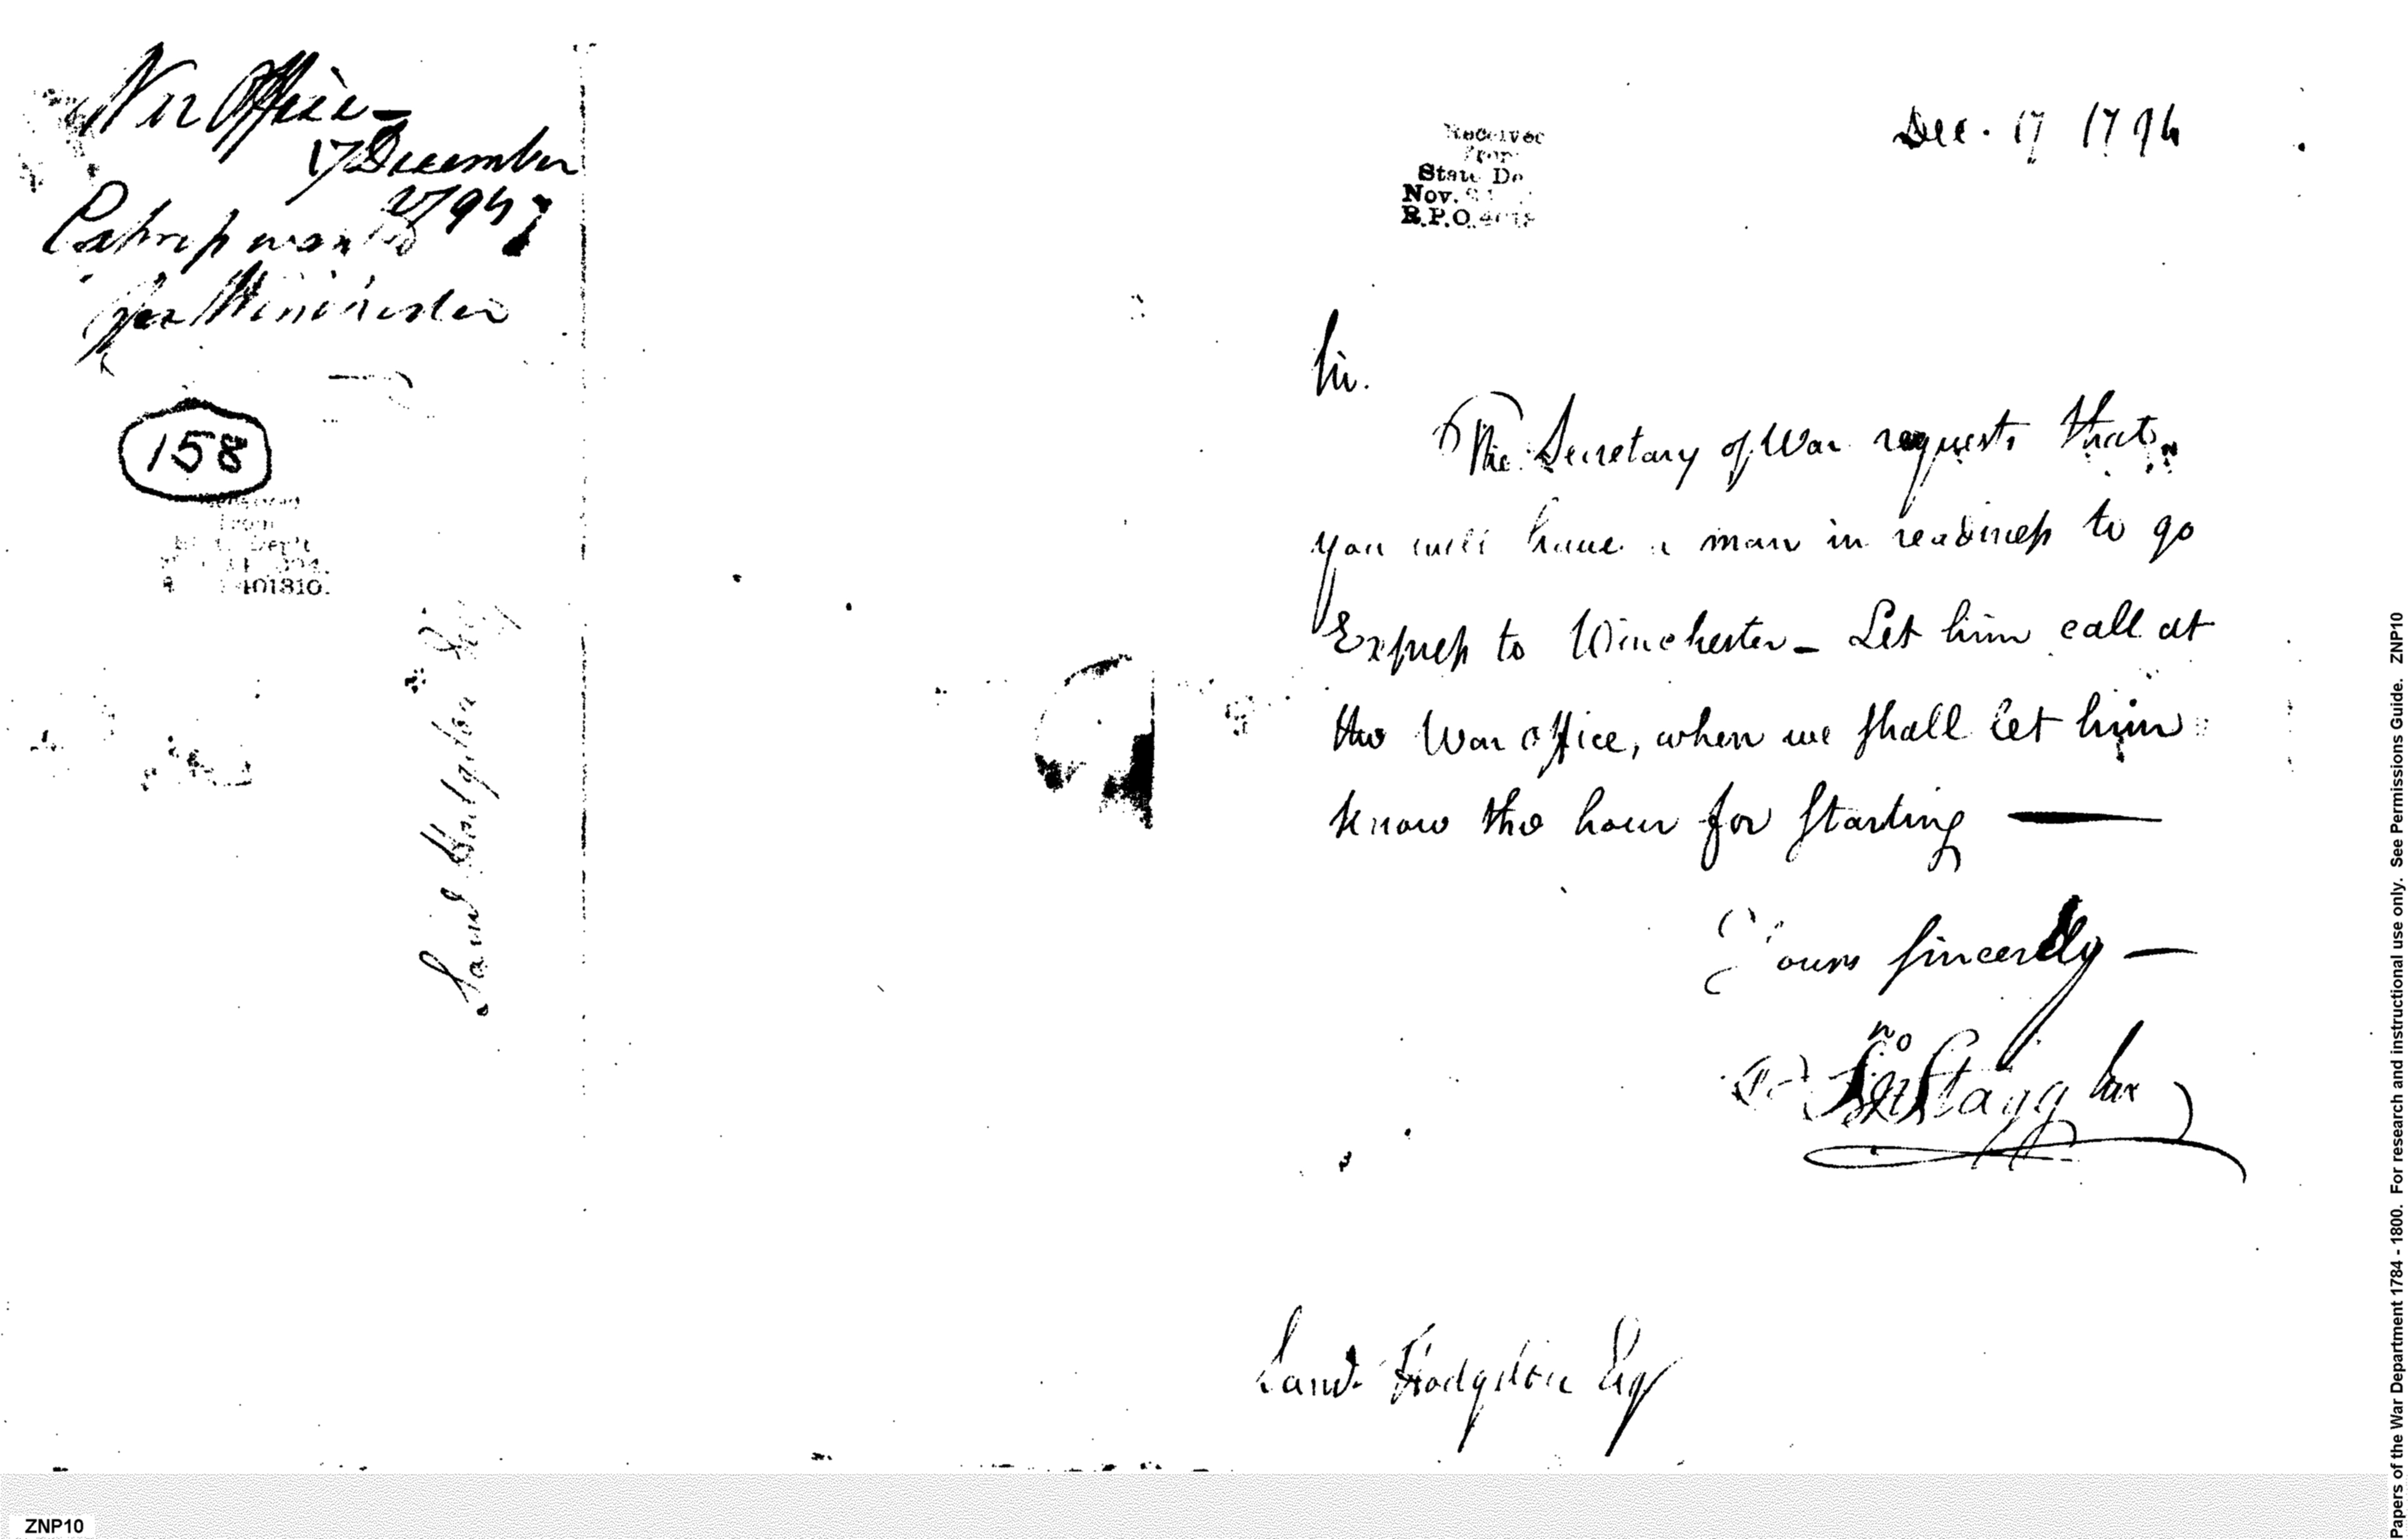 War Office
17 December
1794
Express wanted
for Winchester
158
Received
from
Dep't
401810.
Saml Hodgdon Esq
Received
From
State De
Nov.
R.P.O
Dec. 17 1794
Sir.
The Secretary of War requests that
you will have a man in readiness to go
Express to Winchester – Let him call at
the War office, when we shall let him
know the hour for starting —
Yours sincerely —
Jno Stagg Junr
Saml Hodgdon Esq
ZNP10
Papers of the War Department 1784 - 1800. For research and instructional use only. See Permissions Guide. ZNP10